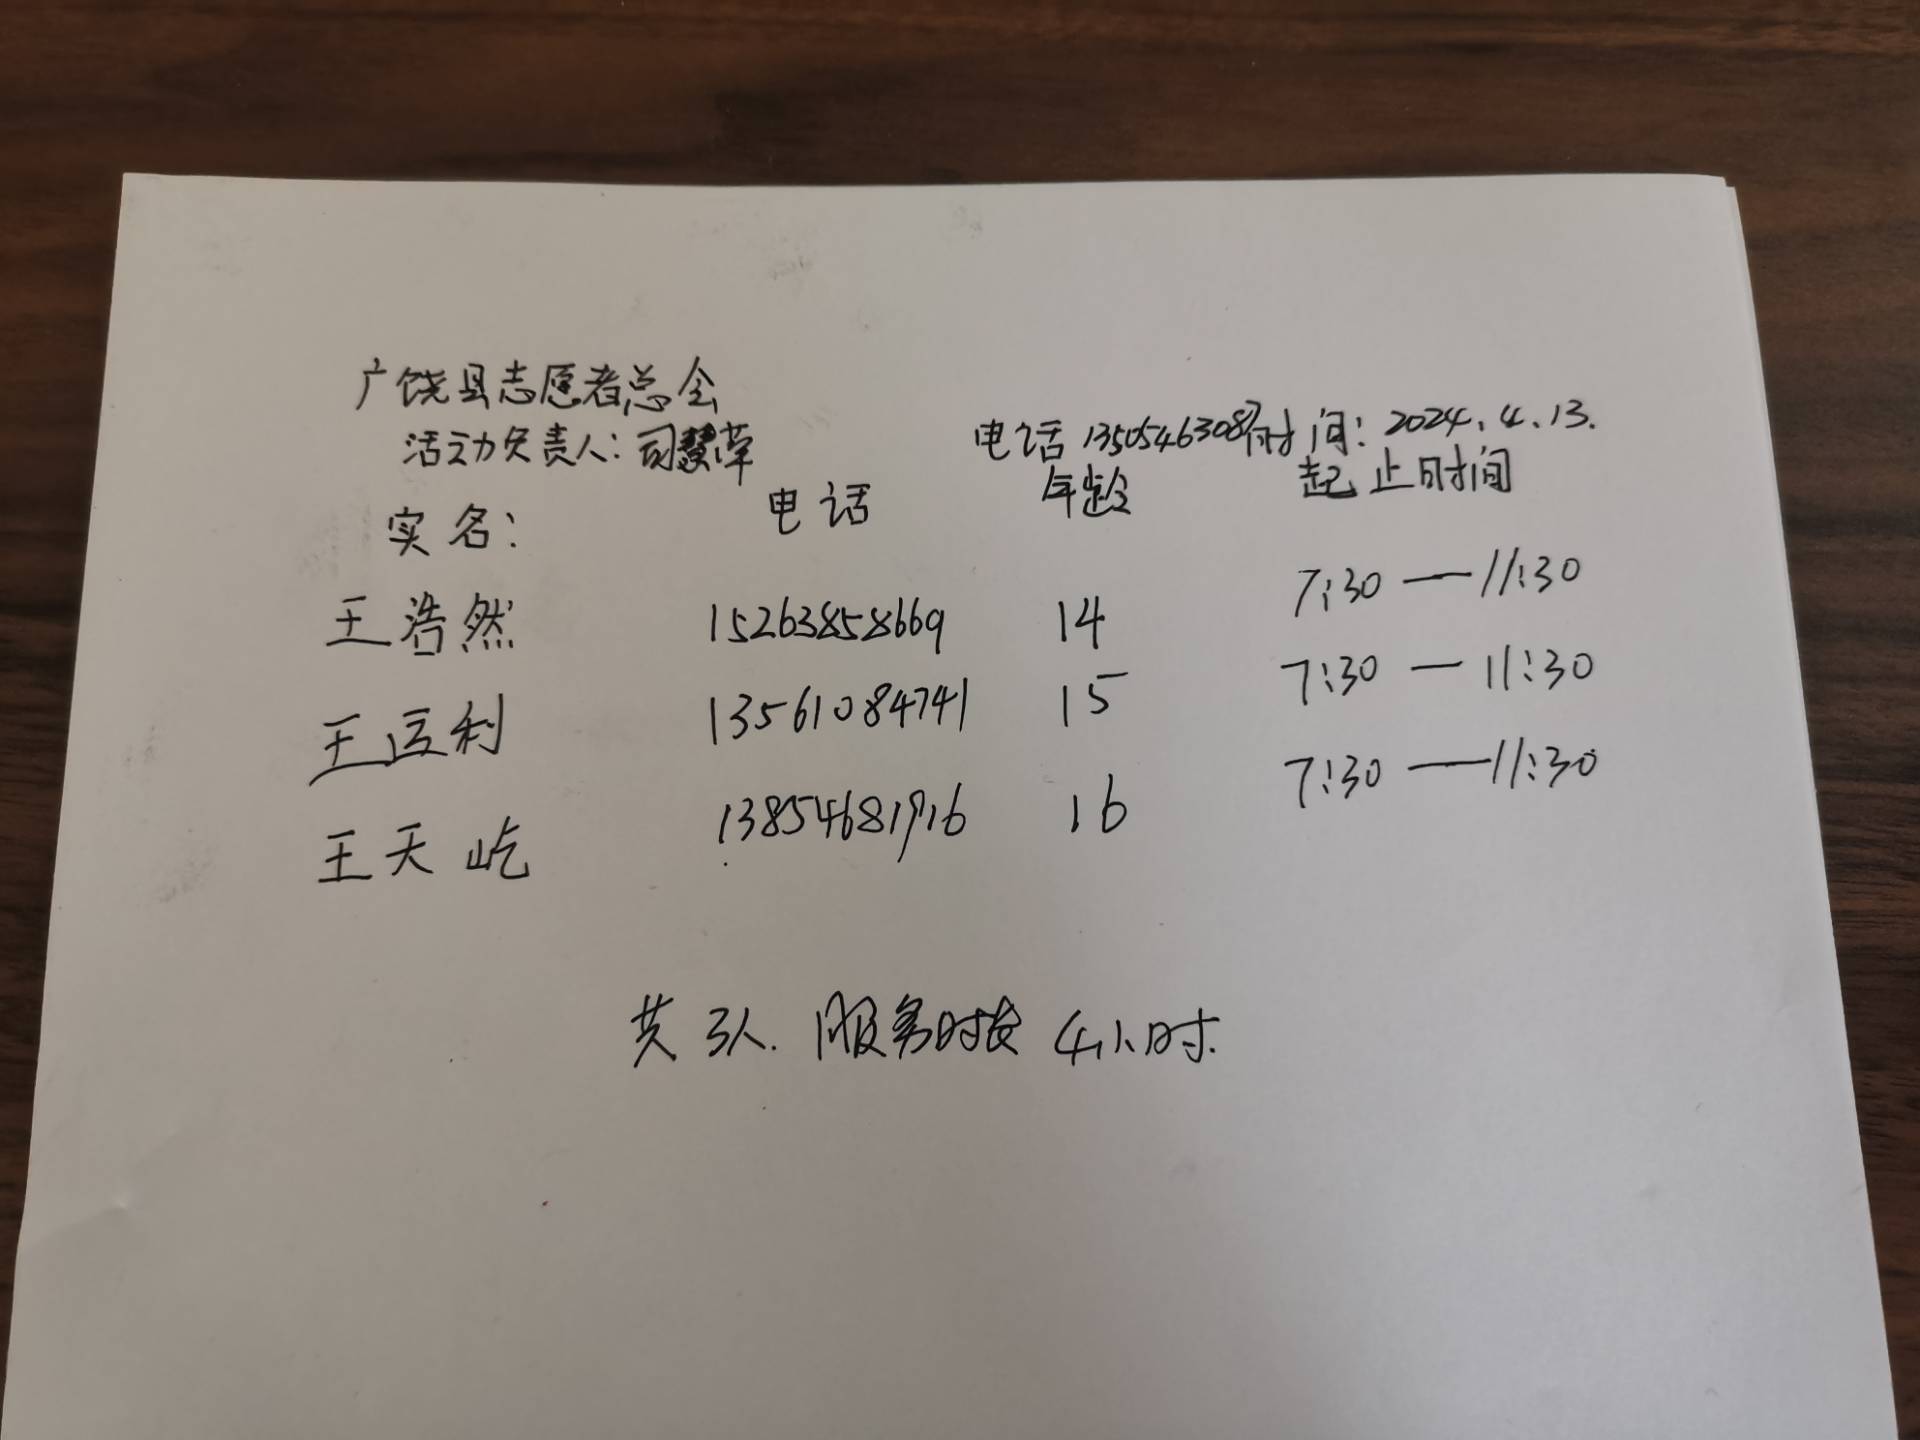 广饶县志愿者总会
活动负责人:司慧荣 电话 13505463087 时间:2024.4.13.
实名: 电话 年龄 起止时间
王浩然 15263858669 14 7:30—11:30
王利 13561084741 15 7:30—11:30
王天屹 13854681916 16 7:30—11:30
共3人. 服务时长 4小时.